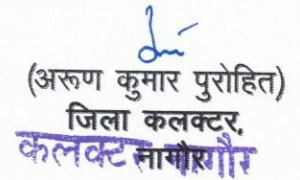 (अरूण कुमार पुरोहित)
जिला कलक्टर,
नागौर
कलक्टर नागौर